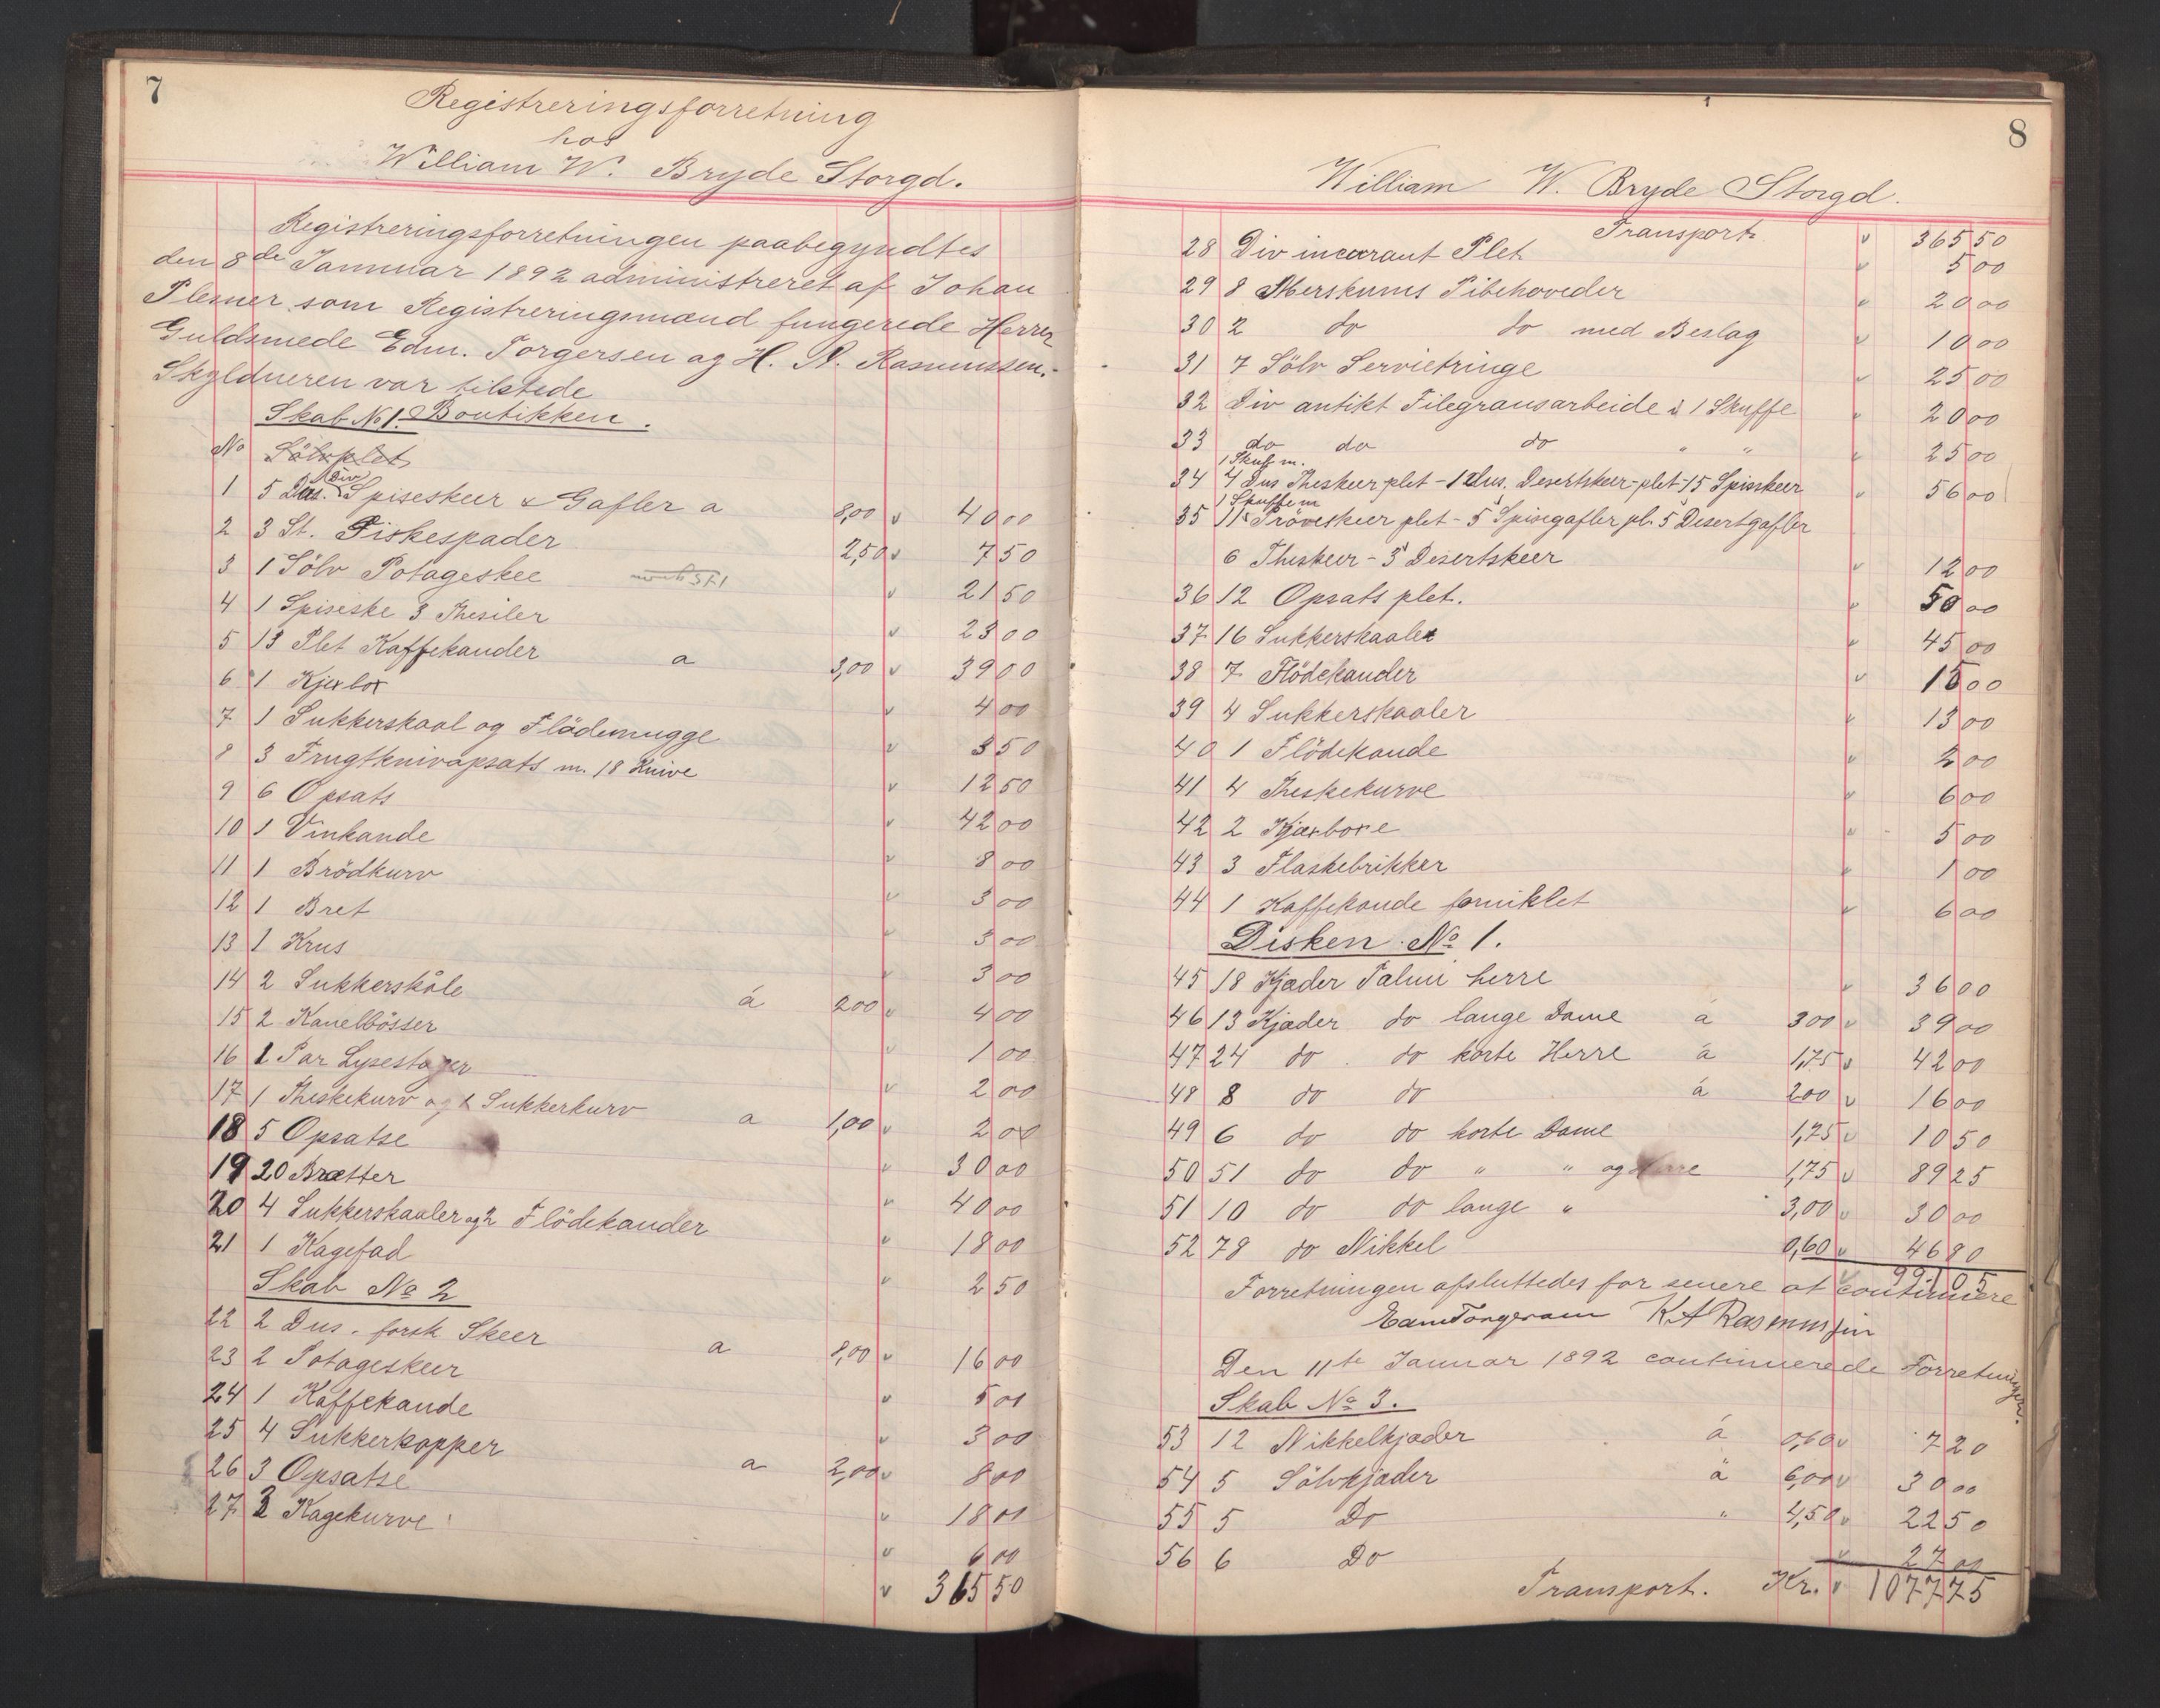 7
Registreringsforretning
hos
William W. Bryde Storgd.
Registreringsforretningen paabegyndtes
den 8de Januar 1892 administreret af Johan
Plesner som Registreringsmænd fungerede Herrer
Guldsmede Edm. Torgersen og H. N. Rasmussen.
Skyldneren var tilstede
Skab No 1. Boutikken.
No Sölvplet
1 5 Dus. Div Spiseskeer & Gafler a 8,00 " 40 00
2 3 St. Fiskespader 2,50 " 7 50
3 1 Sölv Potageskee " 21 50
4 1 Spiseske 3 Thesiler " 23 00
5 13 Plet Kaffekander a 3,00 " 39 00
6 1 Kjexbox " 4 00
7 1 Sukkerskaal og Flödemugge " 3 50
8 3 Frugtknivopsats m. 18 Knive " 12 50
9 6 Opsats " 42 00
10 1 Vinkande " 8 00
11 1 Brödkurv " 3 00
12 1 Bret " 3 00
13 1 Krus " 3 00
14 2 Sukkerskåle á 200 " 4 00
15 2 Kanelbösser " 1 00
16 1 Par Lysestager " 2 00
17 1 Theskekurv og 1 Sukkerkurv a 1,00 " 2 00
18 5 Opsatse " 30 00
19 20 Brætter " 40 00
20 4 Sukkerskaaler og 2 Flödekander " 18 00
21 1 Kagefad " 2 50
Skab No 2
22 2 Dus. forsk Skeer a 8,00 " 16 00
23 2 Potageskeer " 5 00
24 1 Kaffekande " 3 00
25 4 Sukkerkopper a 2,00 " 8 00
26 3 Opsatse " 18 00
27 3 Kagekurve " 6 00
" 365 50
8
William W. Bryde Storgd.
Transport " 365 50
28 Div incourant Plet " 5 00
29 8 Merskums Pibehoveder " 20 00
30 2 do do med Beslag " 10 00
31 7 Sölv Servietringe " 25 00
32 Div antikt Filegransarbeide i 1 Skuffe " 20 00
33 do do do " " " 25 00
1 Skuf m.
34 4 Dus Theskeer plet - 1 Dus. Desertskeer-plet - 15 Spiseskeer " 56 00
1 Skuffe m
35 11 Pröveskeer plet - 5 Spisegafler pl. 5 Desertgafler
6 Theskeer - 3 Desertskeer " 12 00
36 12 Opsats plet. " 50 00
37 16 Sukkerskaaler " 45 00
38 7 Flödekander " 15 00
39 4 Sukkerskaaler " 13 00
40 1 Flödekande " 2 00
41 4 Theskekurve " 6 00
42 2 Kjexboxe " 5 00
43 3 Flaskebrikker " 1 00
44 1 Kaffekande forniklet " 6 00
Disken No 1.
45 18 Kjæder Talmi herre " 36 00
46 13 Kjæder do lange Dame á 300 " 39 00
47 24 do do korte Herre á 1,75 " 42 00
48 8 do do á 200 " 16 00
49 6 do do korte Dame 1,75 " 10 50
50 51 do do " " og Herre 1,75 " 89 25
51 10 do do lange " 3,00 " 30 00
52 78 do Nikkel 0,60 " 46 80
991 05
Forretningen afsluttedes for senere at continuere
Edm Torgersen K A Rasmussen
Den 11te Januar 1892 continuerede Forretningen.
Skab No 3.
53 12 Nikkelkjæder á 0,60 " 7 20
54 5 Sölvkjæder á 6,00 " 30 00
55 5 Do " 4,50 " 22 50
56 6 Do " 27 00
Transport. Kr. " 1077 75